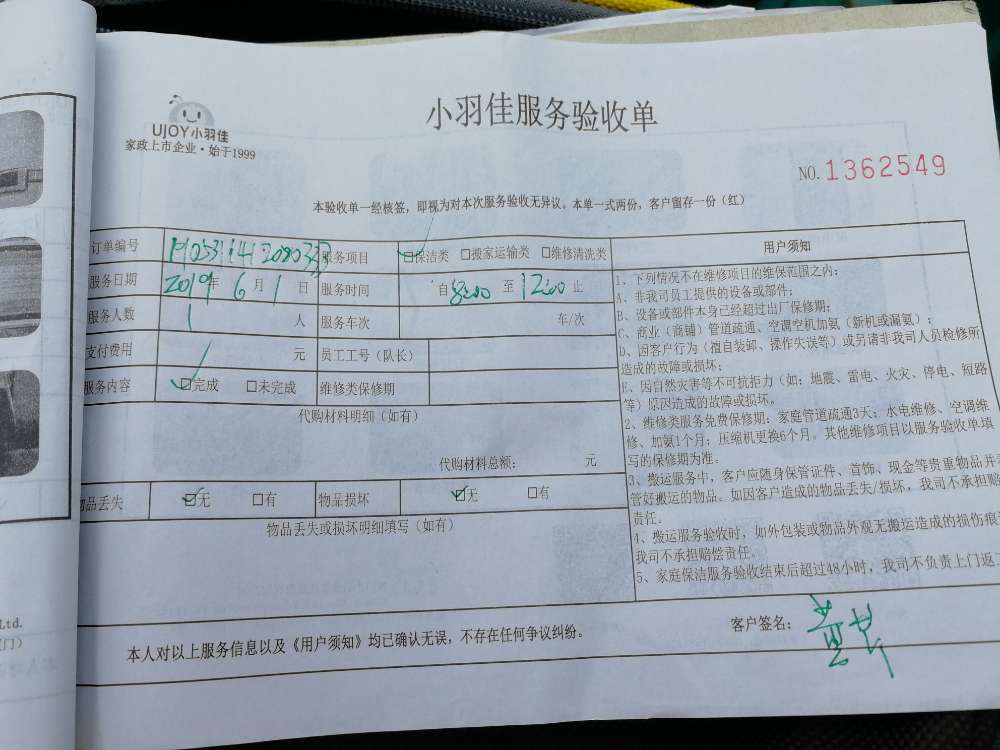 小羽佳服务验收单
UJOY小羽佳
家政上市企业·始于1999
NO.1362549
本验收单一经核签，即视为对本次服务验收无异议。本单一式两份，客户留存一份（红）
订单编号 服务项目 保洁类 搬家运输类 维修清洗类
服务日期 2019年6月1日 服务时间 自8:00至12:00止
服务人数 1人 服务车次 车/次
支付费用 元 员工工号（队长）
服务内容 完成 未完成 维修类保修期
代购材料明细（如有）
代购材料总额： 元
物品丢失 无 有 物品损坏 无 有
物品丢失或损坏明细填写（如有）
用户须知
1、下列情况不在维修项目的维保范围之内：
A、非我司员工提供的设备或部件；
B、设备或部件本身已经超过出厂保修期；
C、商业（商铺）管道疏通、空调空机加氨（新机或漏氨）；
D、因客户行为（擅自装卸、操作失误等）或另请非我司人员检修所
造成的故障或损坏；
E、因自然灾害等不可抗拒力（如：地震、雷电、火灾、停电、短路
等）原因造成的故障或损坏。
2、维修类服务免费保修期：家庭管道疏通3天；水电维修、空调维
修、加氨1个月；压缩机更换6个月。其他维修项目以服务验收单填
写的保修期为准。
3、搬运服务中，客户应随身保管证件、首饰、现金等贵重物品并
管好搬运的物品。如因客户造成的物品丢失/损坏，我司不承担赔
责任。
4、搬运服务验收时，如外包装或物品外观无搬运造成的损伤痕
我司不承担赔偿责任。
5、家庭保洁服务验收结束后超过48小时，我司不负责上门返工
本人对以上服务信息以及《用户须知》均已确认无误，不存在任何争议纠纷。
客户签名：
Ltd.
门）